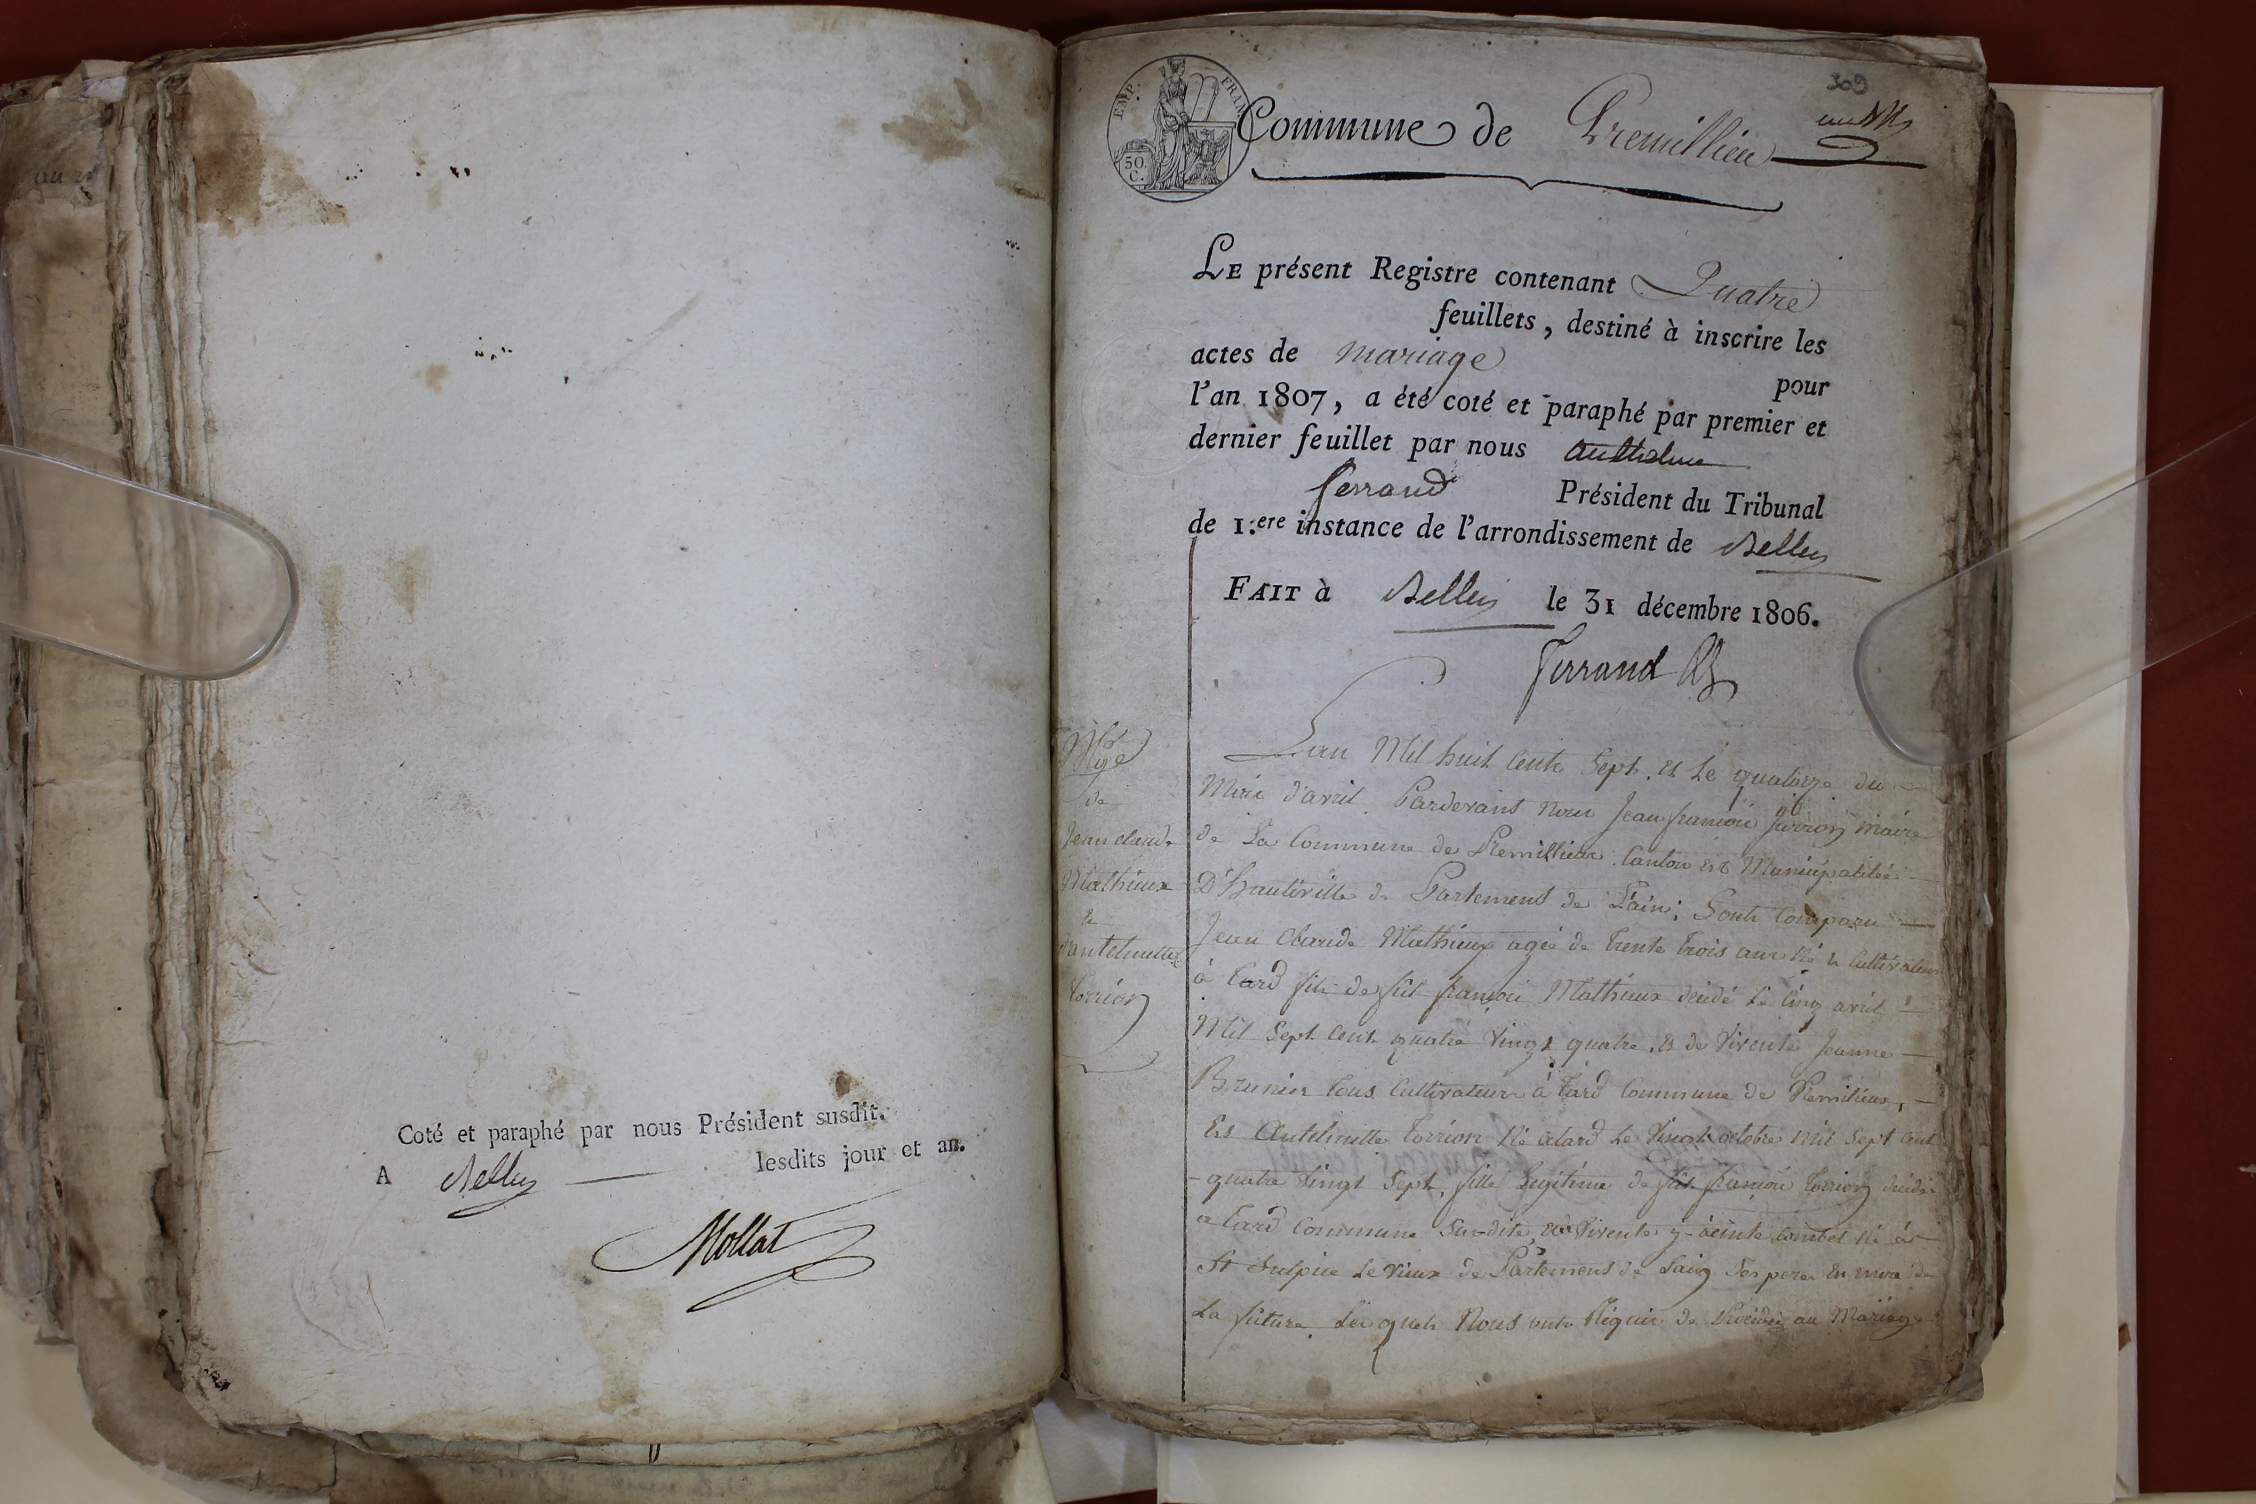 Coté et paraphé par nous Président susdit.
A Belley lesdits jour et an.
Mollat
309
EMP. FRAN
50.
C.
Commune de Premillieu
LE présent Registre contenant Quatre
feuillets, destiné à inscrire les
actes de mariage
pour
l'an 1807, a été coté et paraphé par premier et
dernier feuillet par nous Anthelme
ferrand Président du Tribunal
de 1.ere instance de l'arrondissement de Belley
FAIT à Belley le 31 décembre 1806.
Ferrand
M.ge
de
Jean claude
Mathieux
&
antelmette
Torrion
Lan Mil huit Cents Sept, et Le quatorze du
Mois d'avril, Pardevant Nous Jean françois maire
de La Commune de Premillieu, Canton et Municipalité
D'hauteville de Partement de L'ain; Sont Comparu
Jean Claude Mathieux agée de trente trois ans Né & Cultivateur
à tard fils de fût françois Mathieux décédé Le Cinq avril
Mil Sept Cent quatre Vingt quatre, & de Vivente Jeanne
Brunier tous Cultivateur à tard Commune de Premilieux,
Et Antelmette Torrion Né à tard Le Vingt octobre Mil Sept Cent
quatre Vingt Sept, fille Legitime de fût françois Torrion décédé
a tard Commune Sur-dite, et Vivente Combet Né à
St Sulpice Le Vieux de Partement de Lain Ses pere Et mere de
La future, Les quels Nous ont Requis de Procéder au Mariage